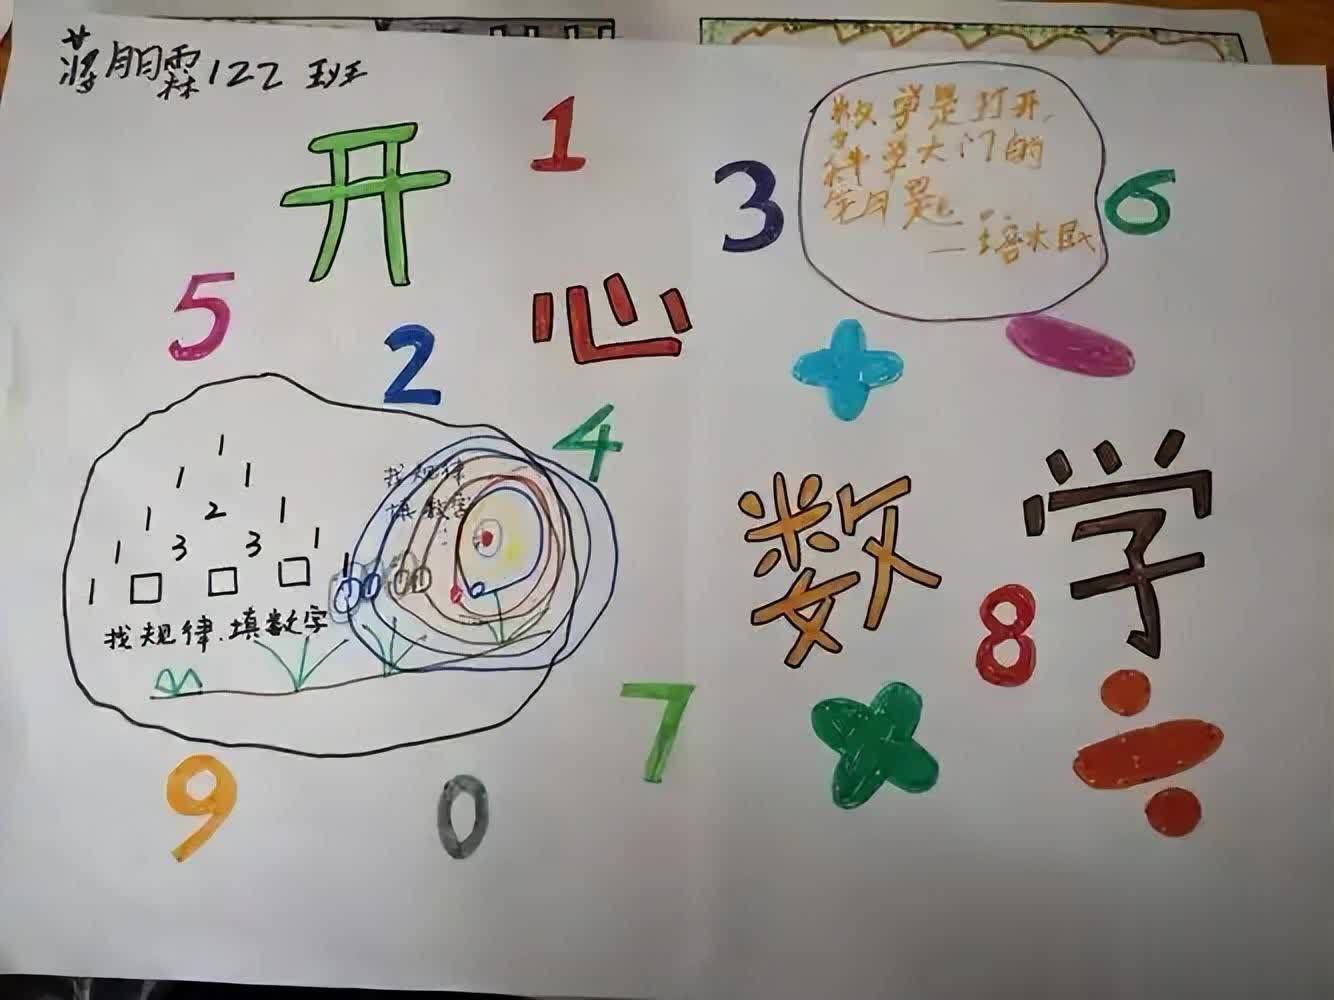 蒋明霖122班
开
1
数学是打开
科学大门的
3
6
5
心
2
4
1
1 1
找规律
填数字
1 2 1
1 3 3 1
1 □ □ □ 1
找规律.填数字
数
学
8
7
9
0